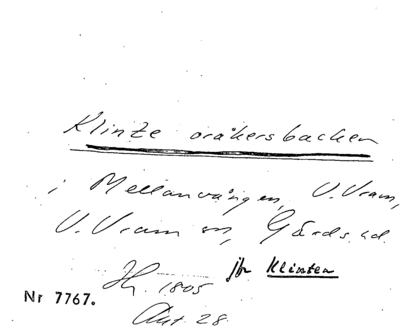 Klinte oråkersbacken
i Mellanvången, V. Vram,
V. Vram sn, Gärds hd.
Jh. 1805 jfr Klinten
Nr 7767.
Akt. 28.